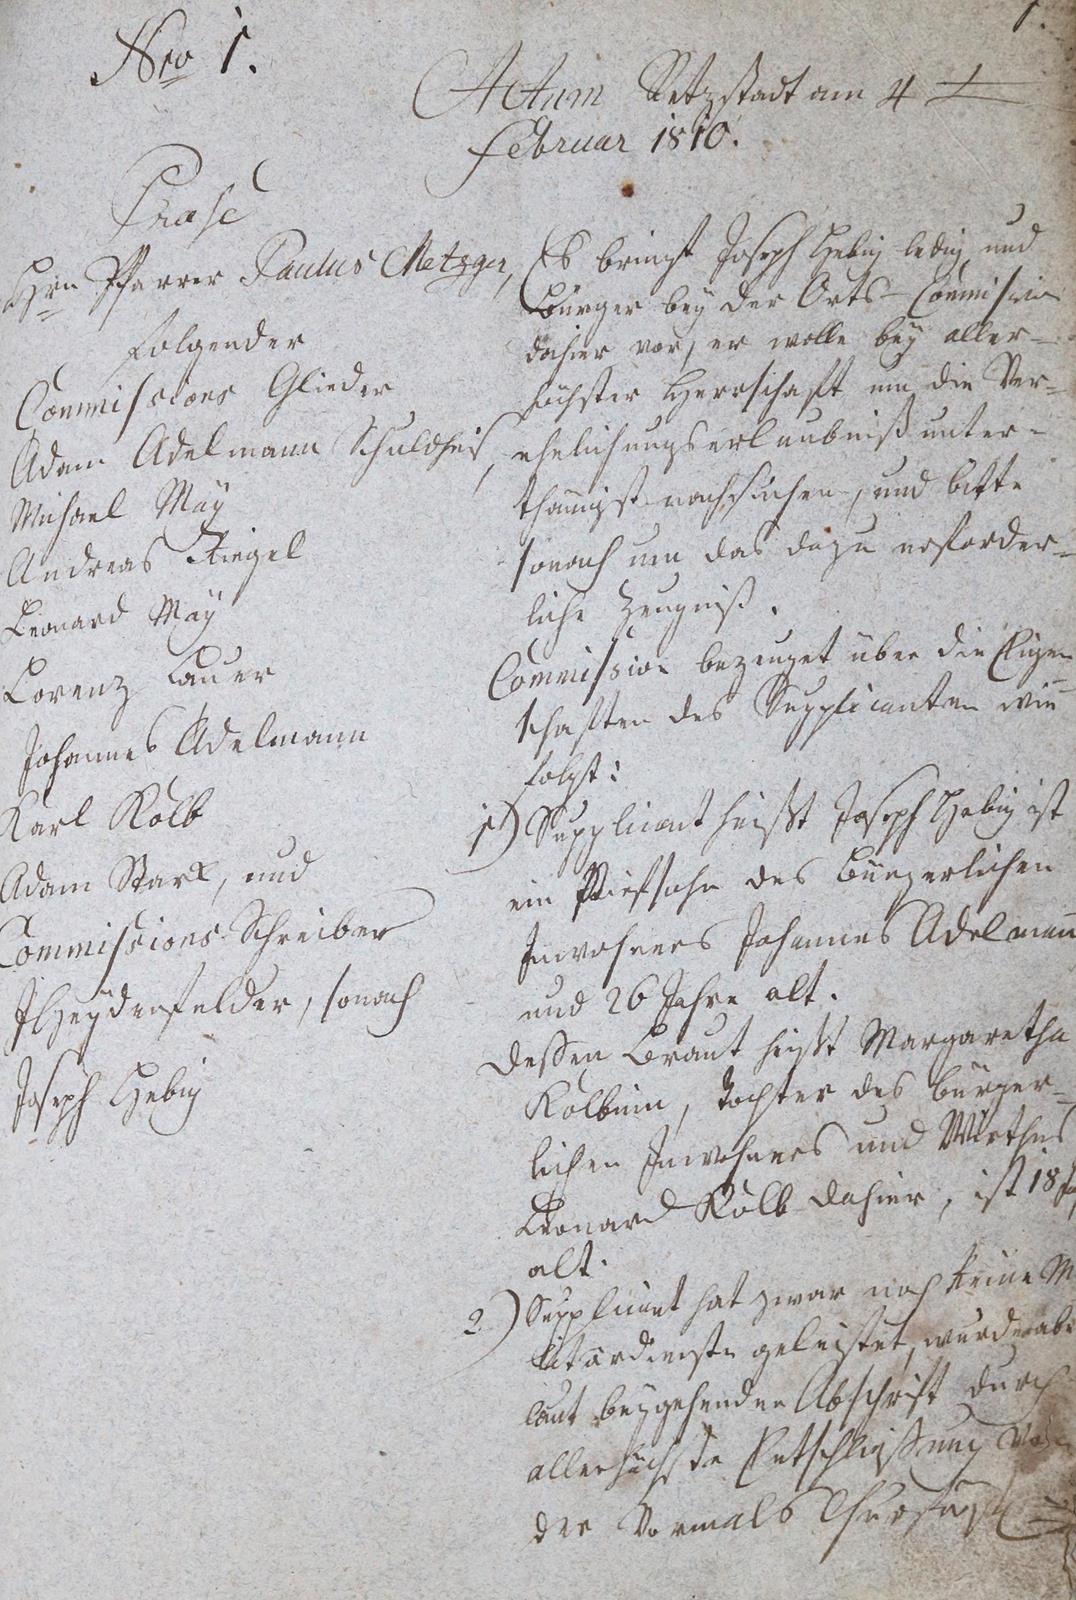 Nro 1.
1.
Actum Retzstadt am 4t
Februar 1810.
Praes
Hrn Pfarrer Paulus Metzger,
folgender
Commissions Glieder
Adam Adelmann Schultheis,
Michael Maÿ
Andreas Riegel
Leonard Maÿ
Lorenz Lauer
Johannes Adelmann
Karl Kolb
Adam Stark, und
Commissions Schreiber
J Heÿdenfelder, sonach
Joseph Hebig
Es bringt Joseph Hebig ledig und
Bürger beÿ der Orts-Commission
dahier vor, er wolle beÿ aller-
höchster Herrschaft um die Ver-
ehelichungserlaubniß unter-
thänigst nachsuchen, und bitte
sonach um das dazu erforder-
liche Zeugniß.
Commission bezeuget über die Eigen
schaften des Supplicanten wie
folgt:
1) Supplicant heißt Joseph Hebig ist
ein Stiefsohn des bürgerlichen
Inwohners Johannes Adelmann
und 26 Jahre alt.
Dessen Braut heißt Margaretha
Kolbinn, Tochter des bürger-
lichen Inwohners und Wirthes
Leonard Kolb dahier, ist 18 Ja
alt.
2) Supplicant hat zwar noch keine M
litärdienste geleistet, wurde abe
laut beÿgehender Abschrift durch
allerhöchste Entschließung von
der vormals Churfürstl